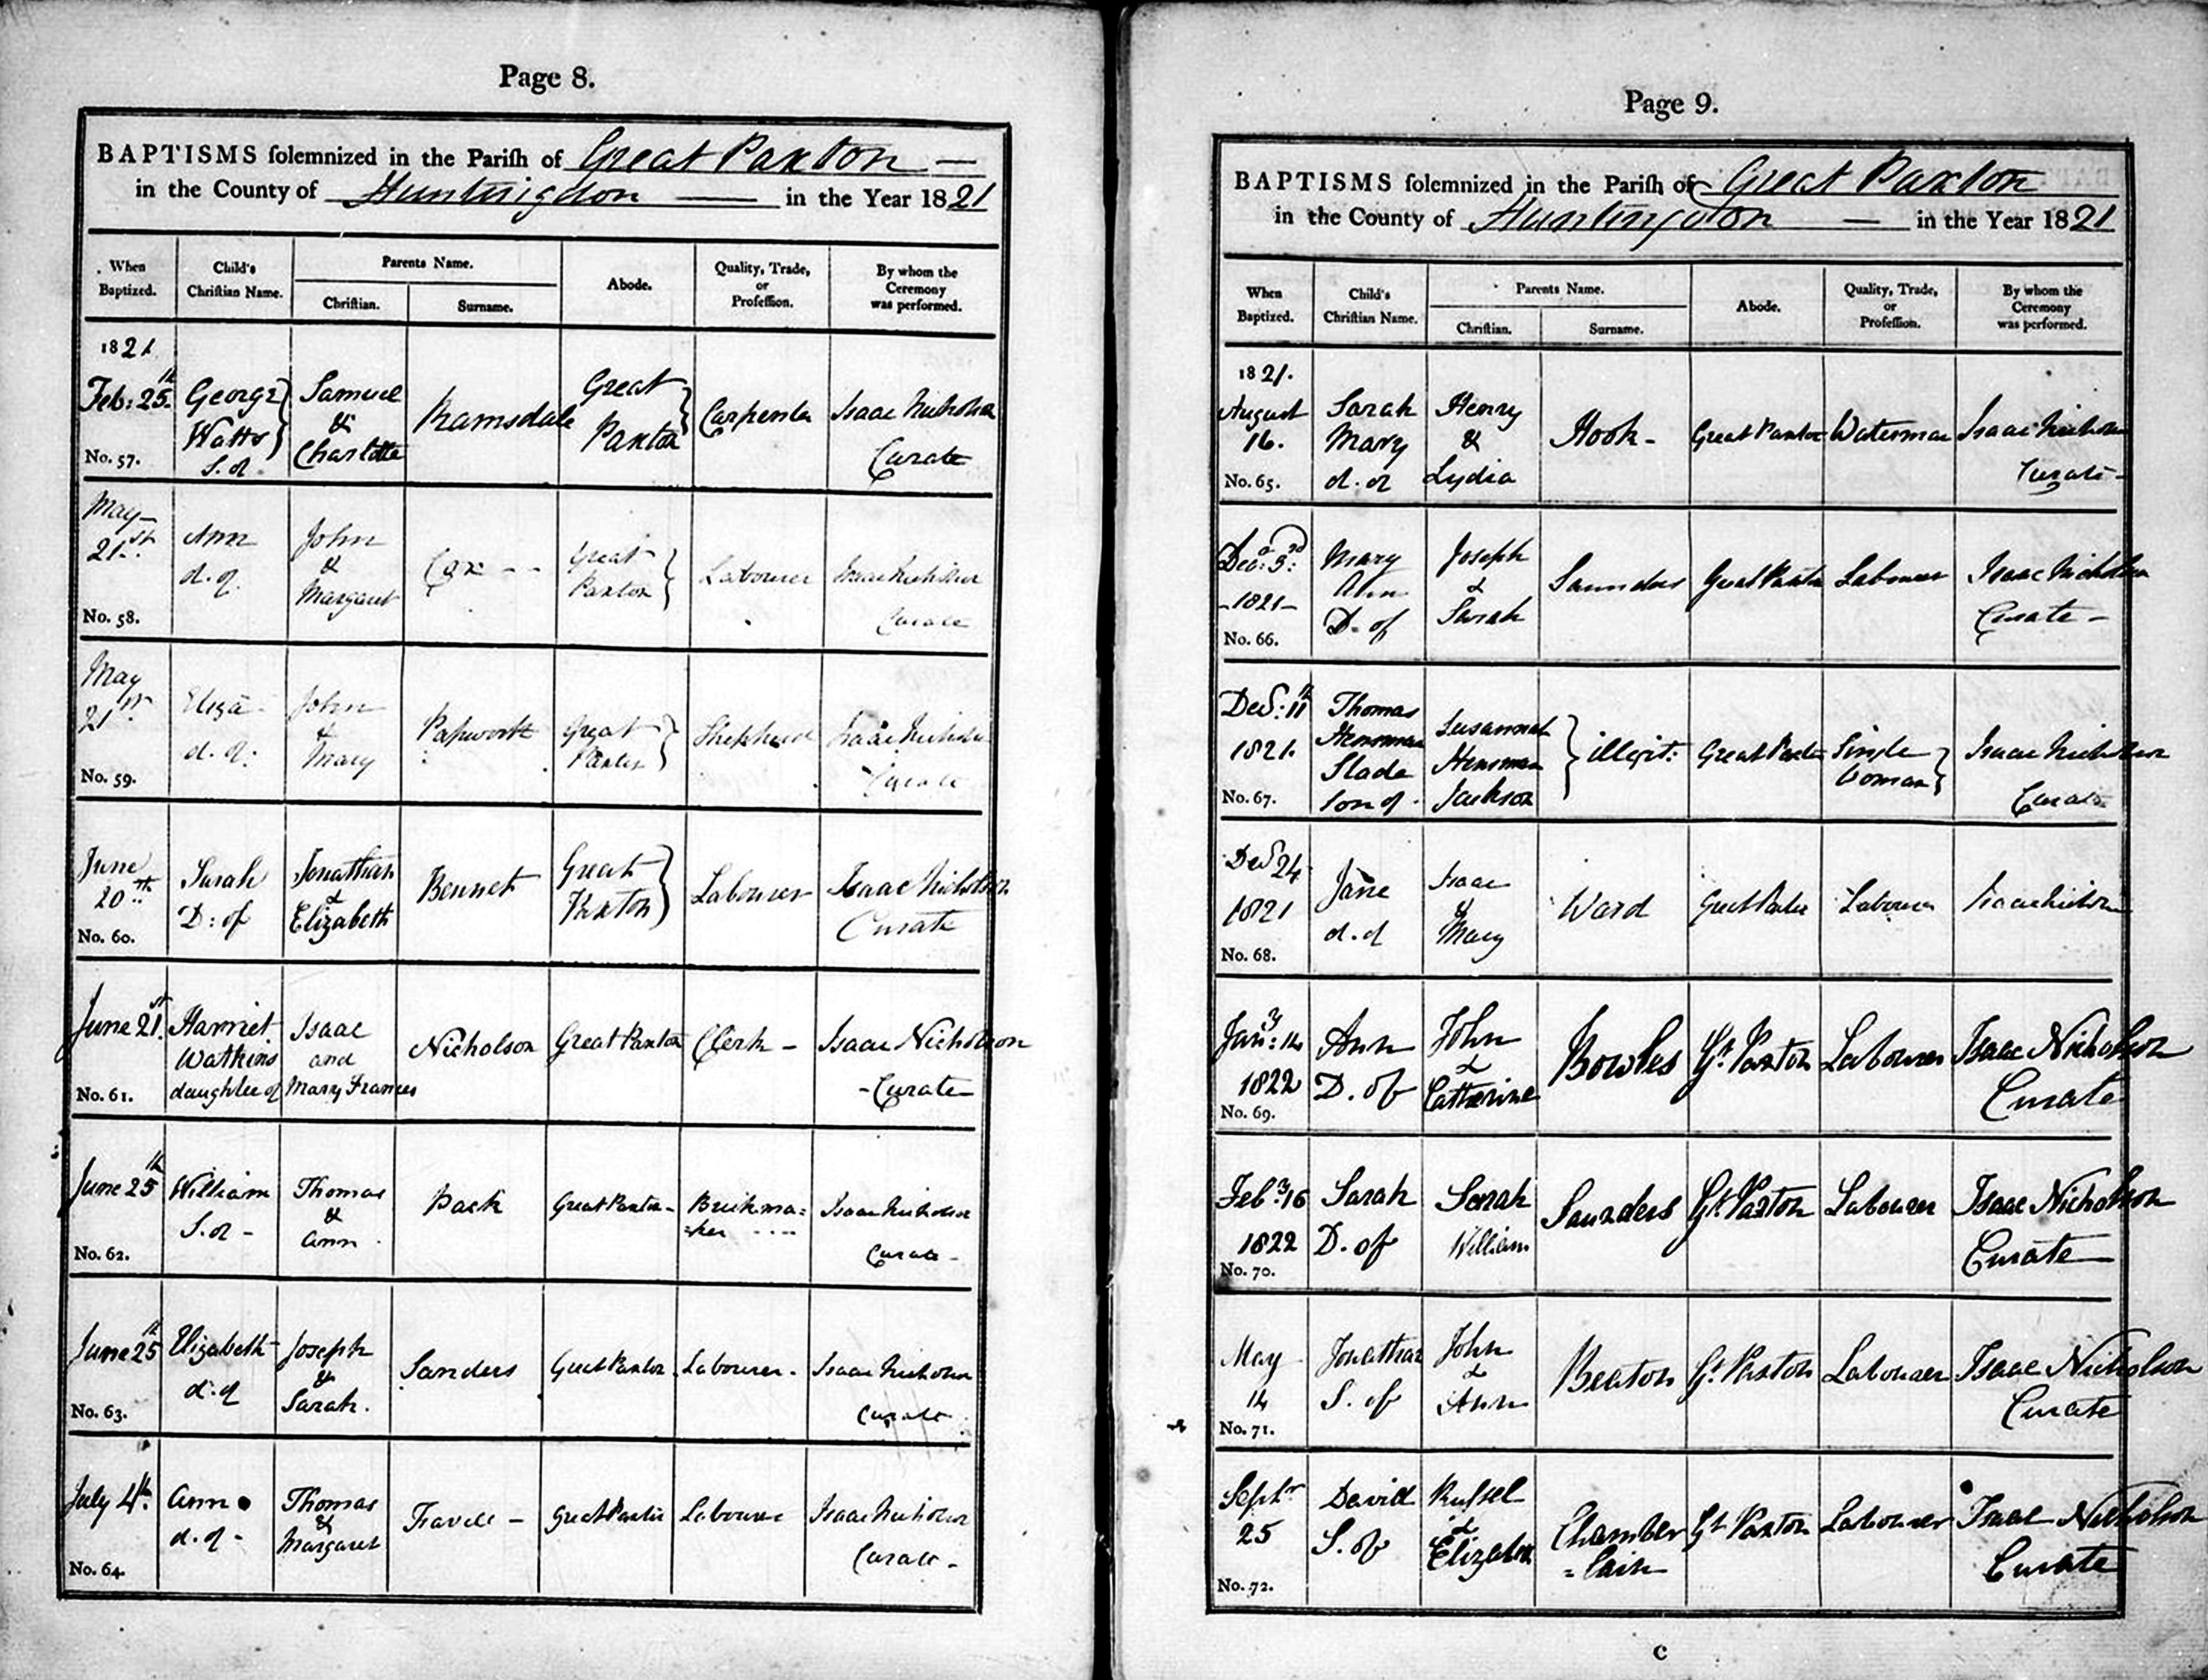 Page 8.
BAPTISMS solemnized in the Parish of Great Paxton —
in the County of Huntingdon — in the Year 1821
When Baptized. Child's Christian Name. Parents Name. Christian. Surname. Abode. Quality, Trade, or Profession. By whom the Ceremony was performed.
1821
Feb: 25th George Watts S. of Samuel & Charlotte Ramsdale Great Paxton Carpenter Isaac Nicholson Curate
No. 57.
May 21st Ann d. of John & Margaret Cox - - Great Paxton Labourer Isaac Nicholson Curate
No. 58.
May 21st Eliza d. of John & Mary Papworth Great Paxton Shepherd Isaac Nicholson Curate
No. 59.
June 20th Sarah D: of Jonathan & Elizabeth Bennet Great Paxton Labourer Isaac Nicholson Curate
No. 60.
June 21st Harriet Watkins daughter of Isaac and Mary Frances Nicholson Great Paxton Clerk - Isaac Nicholson - Curate
No. 61.
June 25th William S. of - Thomas & Ann Pack Great Paxton - Brickma=ker Isaac Nicholson Curate -
No. 62.
June 25th Elizabeth d. of Joseph & Sarah. Sanders Great Paxton Labourer. Isaac Nicholson Curate
No. 63.
July 4th. Ann d. of - Thomas & Margaret Favell - Great Paxton Labourer Isaac Nicholson Curate -
No. 64.
Page 9.
BAPTISMS solemnized in the Parish of Great Paxton
in the County of Huntingdon — in the Year 1821
When Baptized. Child's Christian Name. Parents Name. Christian. Surname. Abode. Quality, Trade, or Profession. By whom the Ceremony was performed.
1821.
August 16. Sarah Mary d. of Henry & Lydia Hook - Great Paxton Waterman Isaac Nicholson Curate -
No. 65.
Dec: 3rd - 1821 - Mary Ann D. of Joseph & Sarah Saunders Great Paxton Labourer Isaac Nicholson Curate -
No. 66.
Decr: 11th 1821. Thomas Hensman Slade son of Susannah Hensman Jackson illegit: Great Paxton Single Woman Isaac Nicholson Curate
No. 67.
Decr 24 1821 Jane d. of Isaac & Mary Ward Great Paxton Labourer Isaac Nicholson
No. 68.
Jany: 14 1822 Ann D. of John & Catherine Bowles Gt. Paxton Labourer Isaac Nicholson Curate
No. 69.
Feby 16 1822 Sarah D. of Sarah William Saunders Gt. Paxton Labourer Isaac Nicholson Curate
No. 70.
May 14 Jonathan S. of John & Ann Beaton Gt. Paxton Labourer Isaac Nicholson Curate
No. 71.
Septr 25 David S. of Russel & Elizabeth Chamber=lain Gt. Paxton Labourer Isaac Nicholson Curate
No. 72.
C